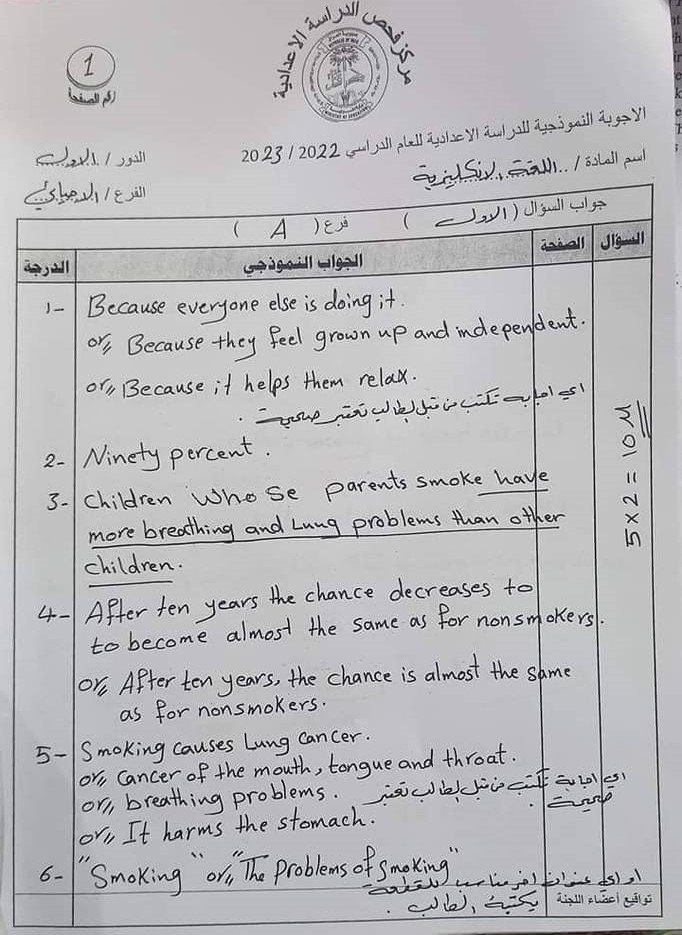 مركز فحص الدراسة الاعدادية
1
رقم الصفحة
الاجوبة النموذجية للدراسة الاعدادية للعام الدراسي 2022 / 2023
الدور / الاول
اسم المادة / .. اللغة الانكليزية
الفرع / الاحيائي
جواب السؤال ( الاول ) فرع ( A )
السؤال الصفحة الجواب النموذجي الدرجة
1- Because everyone else is doing it.
or,, Because they feel grown up and independent.
or,, Because it helps them relax.
اي اجابة تكتب من قبل الطالب تعتبر صحيحة .
2- Ninety percent.
3- Children whose parents smoke have
more breathing and Lung problems than other
children.
5 x 2 = 10 M
4- After ten years the chance decreases to
to become almost the same as for nonsmokers.
or,, After ten years, the chance is almost the same
as for nonsmokers.
5- Smoking causes Lung cancer.
or,, cancer of the mouth, tongue and throat.
or,, breathing problems. اي اجابة تكتب من قبل الطالب تعتبر
صحيحة .
or,, It harms the stomach.
6- "Smoking" or,, "The Problems of smoking"
او اي عنوان اخر مناسب للقطعة
يكتبه الطالب .
تواقيع أعضاء اللجنة